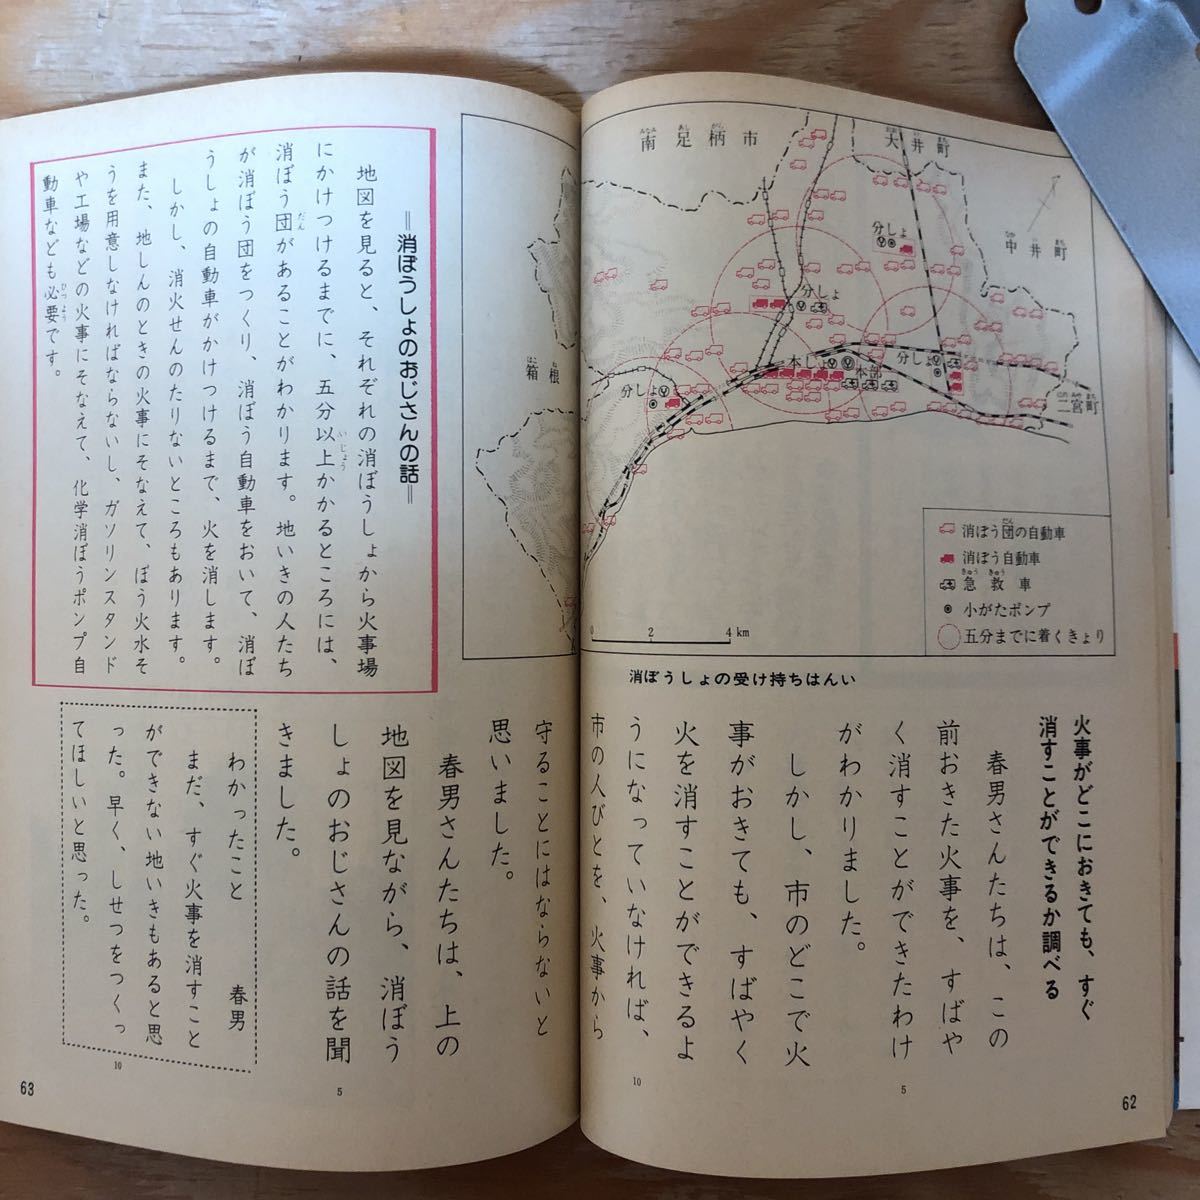 南足柄市
大井町
中井町
二宮町
箱根
分しょ
分しょ
分しょ
分しょ
本しょ
本部
消ぼう団の自動車
消ぼう自動車
急救車
小がたポンプ
五分までに着くきょり
0 2 4 km
消ぼうしょの受け持ちはんい
火事がどこにおきても、すぐ
消すことができるか調べる
春男さんたちは、この
前おきた火事を、すばや
く消すことができたわけ
がわかりました。
しかし、市のどこで火
事がおきても、すばやく
火を消すことができるよ
うになっていなければ、
市の人びとを、火事から
62
守ることにはならないと
思いました。
春男さんたちは、上の
地図を見ながら、消ぼう
しょのおじさんの話を聞
きました。
わかったこと 春男
まだ、すぐ火事を消すこと
ができない地いきもあると思
った。早く、しせつをつくっ
てほしいと思った。
=消ぼうしょのおじさんの話=
地図を見ると、それぞれの消ぼうしょから火事場
にかけつけるまでに、五分以上かかるところには、
消ぼう団があることがわかります。地いきの人たち
が消ぼう団をつくり、消ぼう自動車をおいて、消ぼ
うしょの自動車がかけつけるまで、火を消します。
しかし、消火せんのたりないところもあります。
また、地しんのときの火事にそなえて、ぼう火水そ
うを用意しなければならないし、ガソリンスタンド
や工場などの火事にそなえて、化学消ぼうポンプ自
動車なども必要です。
63
5
10
5
10